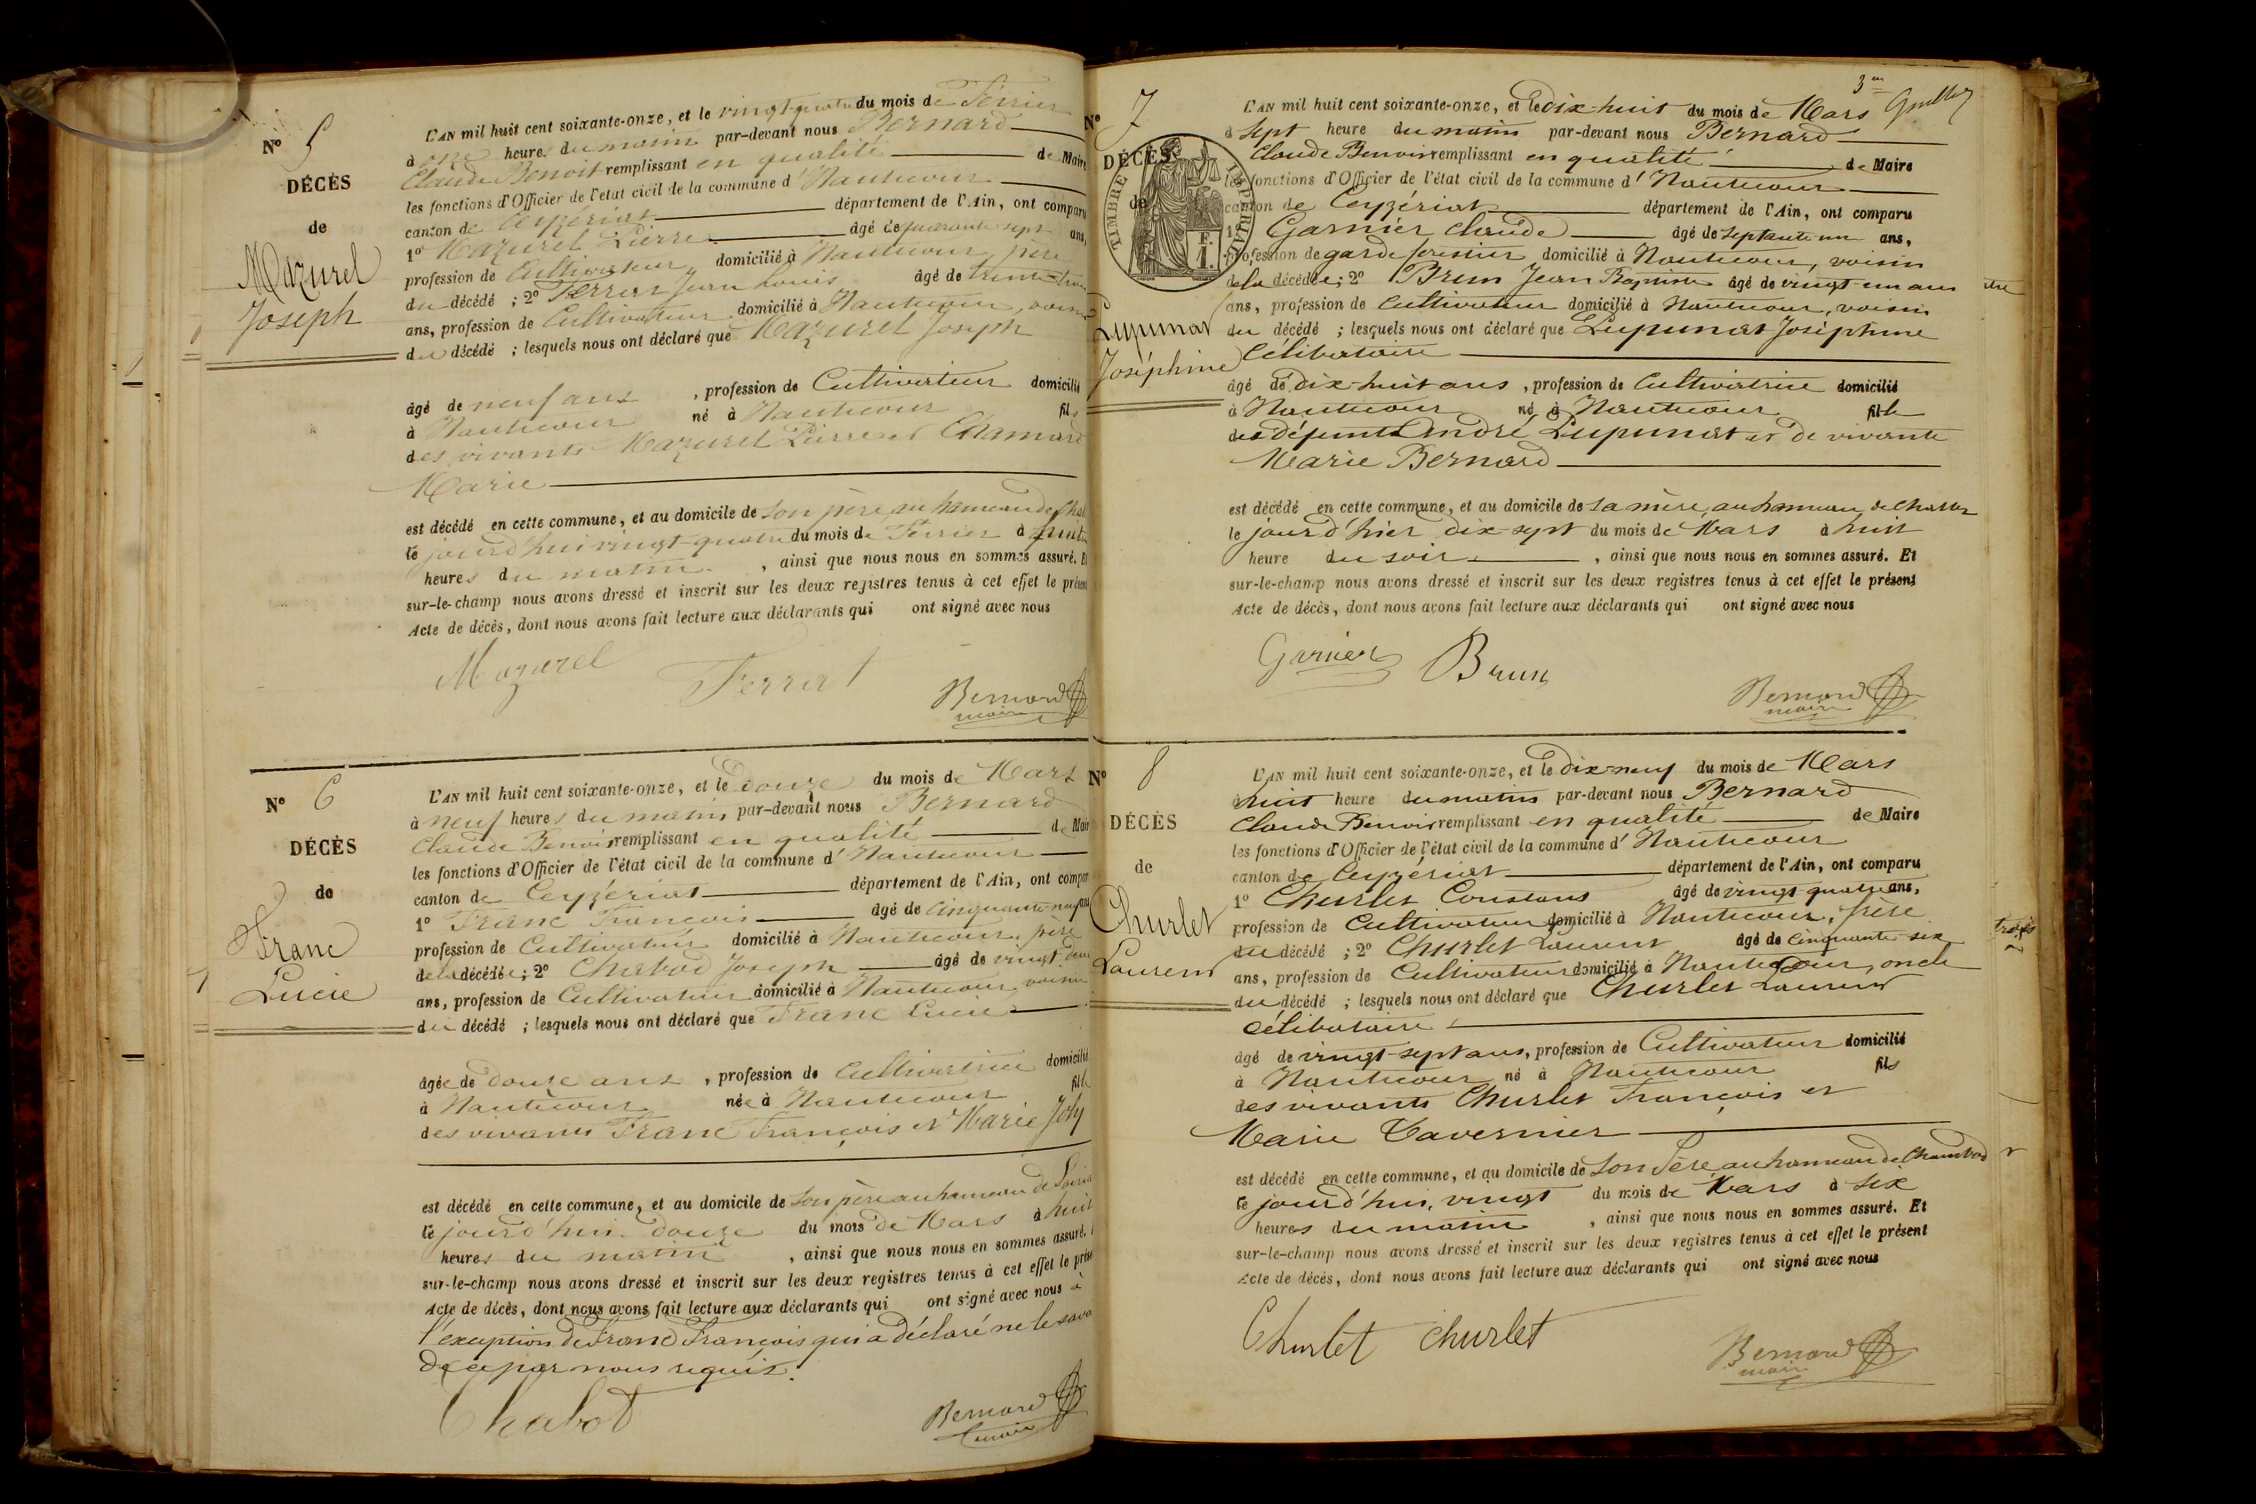 N° 5
DÉCÈS
de
Mazurel
Joseph
L'AN mil huit cent soixante-onze, et le vingt-quatre du mois de Février
à onze heures du matin par-devant nous Bernard
Claude Benoit remplissant en qualité de Maire
les fonctions d'Officier de l'état civil de la commune d'Hautecour
canton de Ceyzériat département de l'Ain, ont comparu
1° Mazurel Pierre âgé de quarante sept ans,
profession de Cultivateur domicilié à Hautecour, père
du décédé ; 2° Ferrat Jean Louis âgé de trente-trois
ans, profession de Cultivateur domicilié à Hautecour, voisin
du décédé ; lesquels nous ont déclaré que Mazurel Joseph
âgé de neuf ans , profession de Cultivateur domicilié
à Hautecour né à Hautecour fils
des vivants Mazurel Pierre et Chanard
Marie
est décédé en cette commune, et au domicile de son père au hameau de
le jourd'hui vingt-quatre du mois de Février à huit
heures du matin , ainsi que nous nous en sommes assuré. Et
sur-le-champ nous avons dressé et inscrit sur les deux registres tenus à cet effet le présent
Acte de décès, dont nous avons fait lecture aux déclarants qui ont signé avec nous
Mazurel Ferrat Bernard
maire
N° 6
DÉCÈS
de
Franc
Lucie
L'AN mil huit cent soixante-onze, et le douze du mois de Mars
à neuf heures du matin par-devant nous Bernard
Claude Benoit remplissant en qualité de Maire
les fonctions d'Officier de l'état civil de la commune d'Hautecour
canton de Ceyzériat département de l'Ain, ont comparu
1° Franc François âgé de cinquante neuf ans
profession de Cultivateur domicilié à Hautecour, père
de la décédée ; 2° Chabod Joseph âgé de vingt deux
ans, profession de Cultivateur domicilié à Hautecour, voisin
du décédé ; lesquels nous ont déclaré que Franc Lucie
âgée de douze ans , profession de Cultivatrice domicilié
à Hautecour née à Hautecour fille
des vivants Franc François et Marie Joly
est décédé en cette commune, et au domicile de son père au hameau de
le jourd'hui douze du mois de Mars à huit
heures du matin , ainsi que nous nous en sommes assuré.
sur-le-champ nous avons dressé et inscrit sur les deux registres tenus à cet effet le présent
Acte de décès, dont nous avons fait lecture aux déclarants qui ont signé avec nous à
l'exception de Franc François qui a déclaré ne le savoir
de ce par nous requis.
Chabod Bernard
maire
3me
N° 7
DÉCÈS
de
TIMBRE IMPÉRIAL
F.
1.
Lupunat
Joséphine
L'AN mil huit cent soixante-onze, et le dix-huit du mois de Mars
à sept heure du matin par-devant nous Bernard
Claude Benoit remplissant en qualité de Maire
les fonctions d'Officier de l'état civil de la commune d'Hautecour
canton de Ceyzériat département de l'Ain, ont comparu
1° Garnier Claude âgé de septante un ans,
profession de garde forestier domicilié à Hautecour, voisin
de la décédée ; 2° Brun Jean Baptiste âgé de vingt un ans
ans, profession de Cultivateur domicilié à Hautecour, voisin
du décédé ; lesquels nous ont déclaré que Lupunat Joséphine
Célibataire
âgé de dix-huit ans , profession de Cultivatrice domicilié
à Hautecour né à Hautecour fille
des défunts André Lupunat et de vivante
Marie Bernard
est décédé en cette commune, et au domicile de sa mère, au hameau de
le jourd'hier dix-sept du mois de Mars à huit
heure du soir , ainsi que nous nous en sommes assuré. Et
sur-le-champ nous avons dressé et inscrit sur les deux registres tenus à cet effet le présent
Acte de décès, dont nous avons fait lecture aux déclarants qui ont signé avec nous
Garnier Brun Bernard
maire
N° 8
DÉCÈS
de
Churlet
Laurent
L'AN mil huit cent soixante-onze, et le dix-neuf du mois de Mars
à huit heure du matin par-devant nous Bernard
Claude Benoit remplissant en qualité de Maire
les fonctions d'Officier de l'état civil de la commune d'Hautecour
canton de Ceyzériat département de l'Ain, ont comparu
1° Churlet Constans âgé de vingt quatre ans,
profession de Cultivateur domicilié à Hautecour, frère
du décédé ; 2° Churlet Laurent âgé de cinquante six
ans, profession de Cultivateur domicilié à Hautecour, oncle
du décédé ; lesquels nous ont déclaré que Churlet Laurent
Célibataire
âgé de vingt-sept ans, profession de Cultivateur domicilié
à Hautecour né à Hautecour fils
des vivants Churlet François et
Marie Tavernier
est décédé en cette commune, et au domicile de son Père, au hameau de Chambod
le jourd'hui, vingt du mois de Mars à six
heures du matin , ainsi que nous nous en sommes assuré. Et
sur-le-champ nous avons dressé et inscrit sur les deux registres tenus à cet effet le présent
Acte de décès, dont nous avons fait lecture aux déclarants qui ont signé avec nous
Churlet churlet Bernard
maire